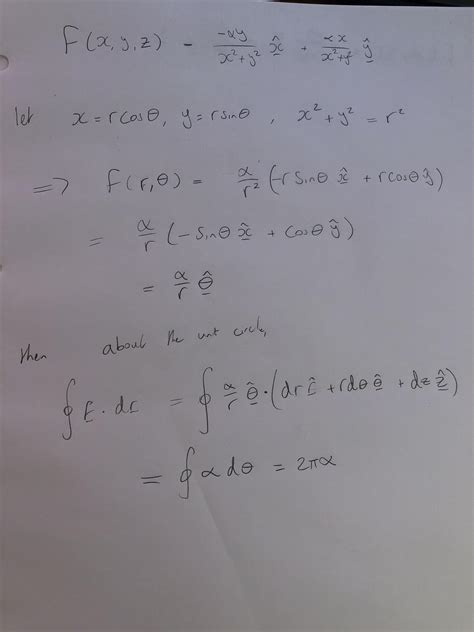 F(x, y, z) = -αy/(x²+y²) x̂ + αx/(x²+y²) ŷ
let x = rcosθ, y = rsinθ, x² + y² = r²
=> F(r, θ) = α/r² (-rsinθ x̂ + rcosθ ŷ)
= α/r (-sinθ x̂ + cosθ ŷ)
= α/r θ̂
then about the unit circle,
∮ F · dr = ∮ α/r θ̂ · (dr r̂ + rdθ θ̂ + dz ẑ)
= ∮ α dθ = 2πα